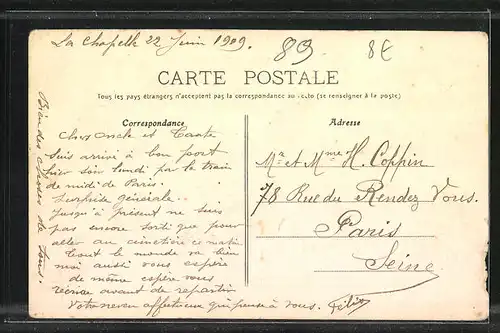 La Chapelle 22 Juin 1909.
89
8€
CARTE POSTALE
Tous les pays étrangers n'acceptent pas la correspondance au recto (se renseigner à la poste)
Correspondance
Cher Oncle et Tante
suis arrivé à bon port
hier soir lundi par le train
de midi de Paris.
Surprise générale..
Jusqu'à présent ne suis
pas encore sorti que pour
aller au cimetière ce matin
Tout le monde va bien
moi aussi vous espère
de même espère vous
récrire avant de repartir
Votre neveu affectueux qui pense à vous. Félix
Bien des choses de tous.
Adresse
Mr et Mme H. Coppin
78 Rue du Rendez Vous.
Paris
Seine